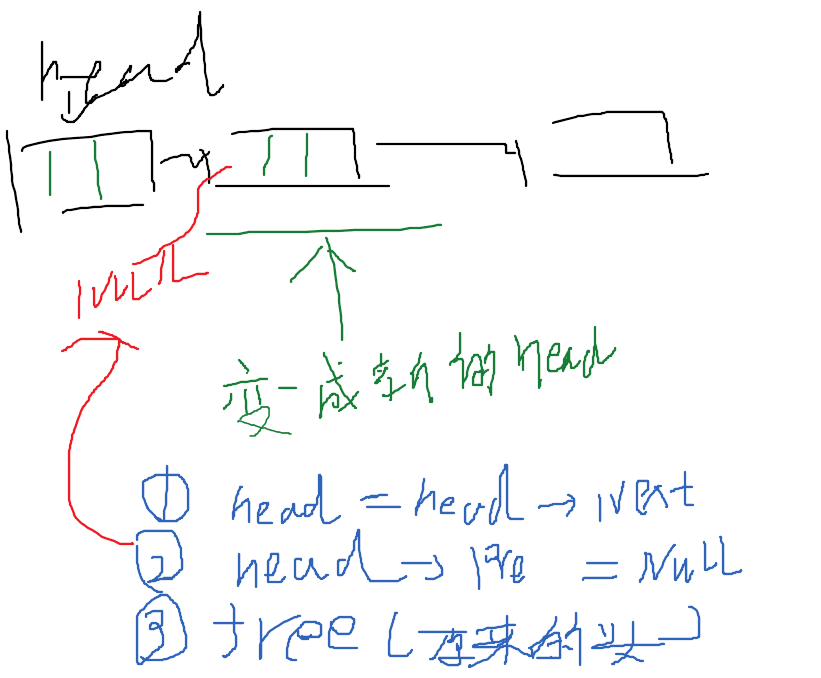 head
NULL
变成新的head
① head = head → Next
② head → Pre = NULL
③ free (原来的头)